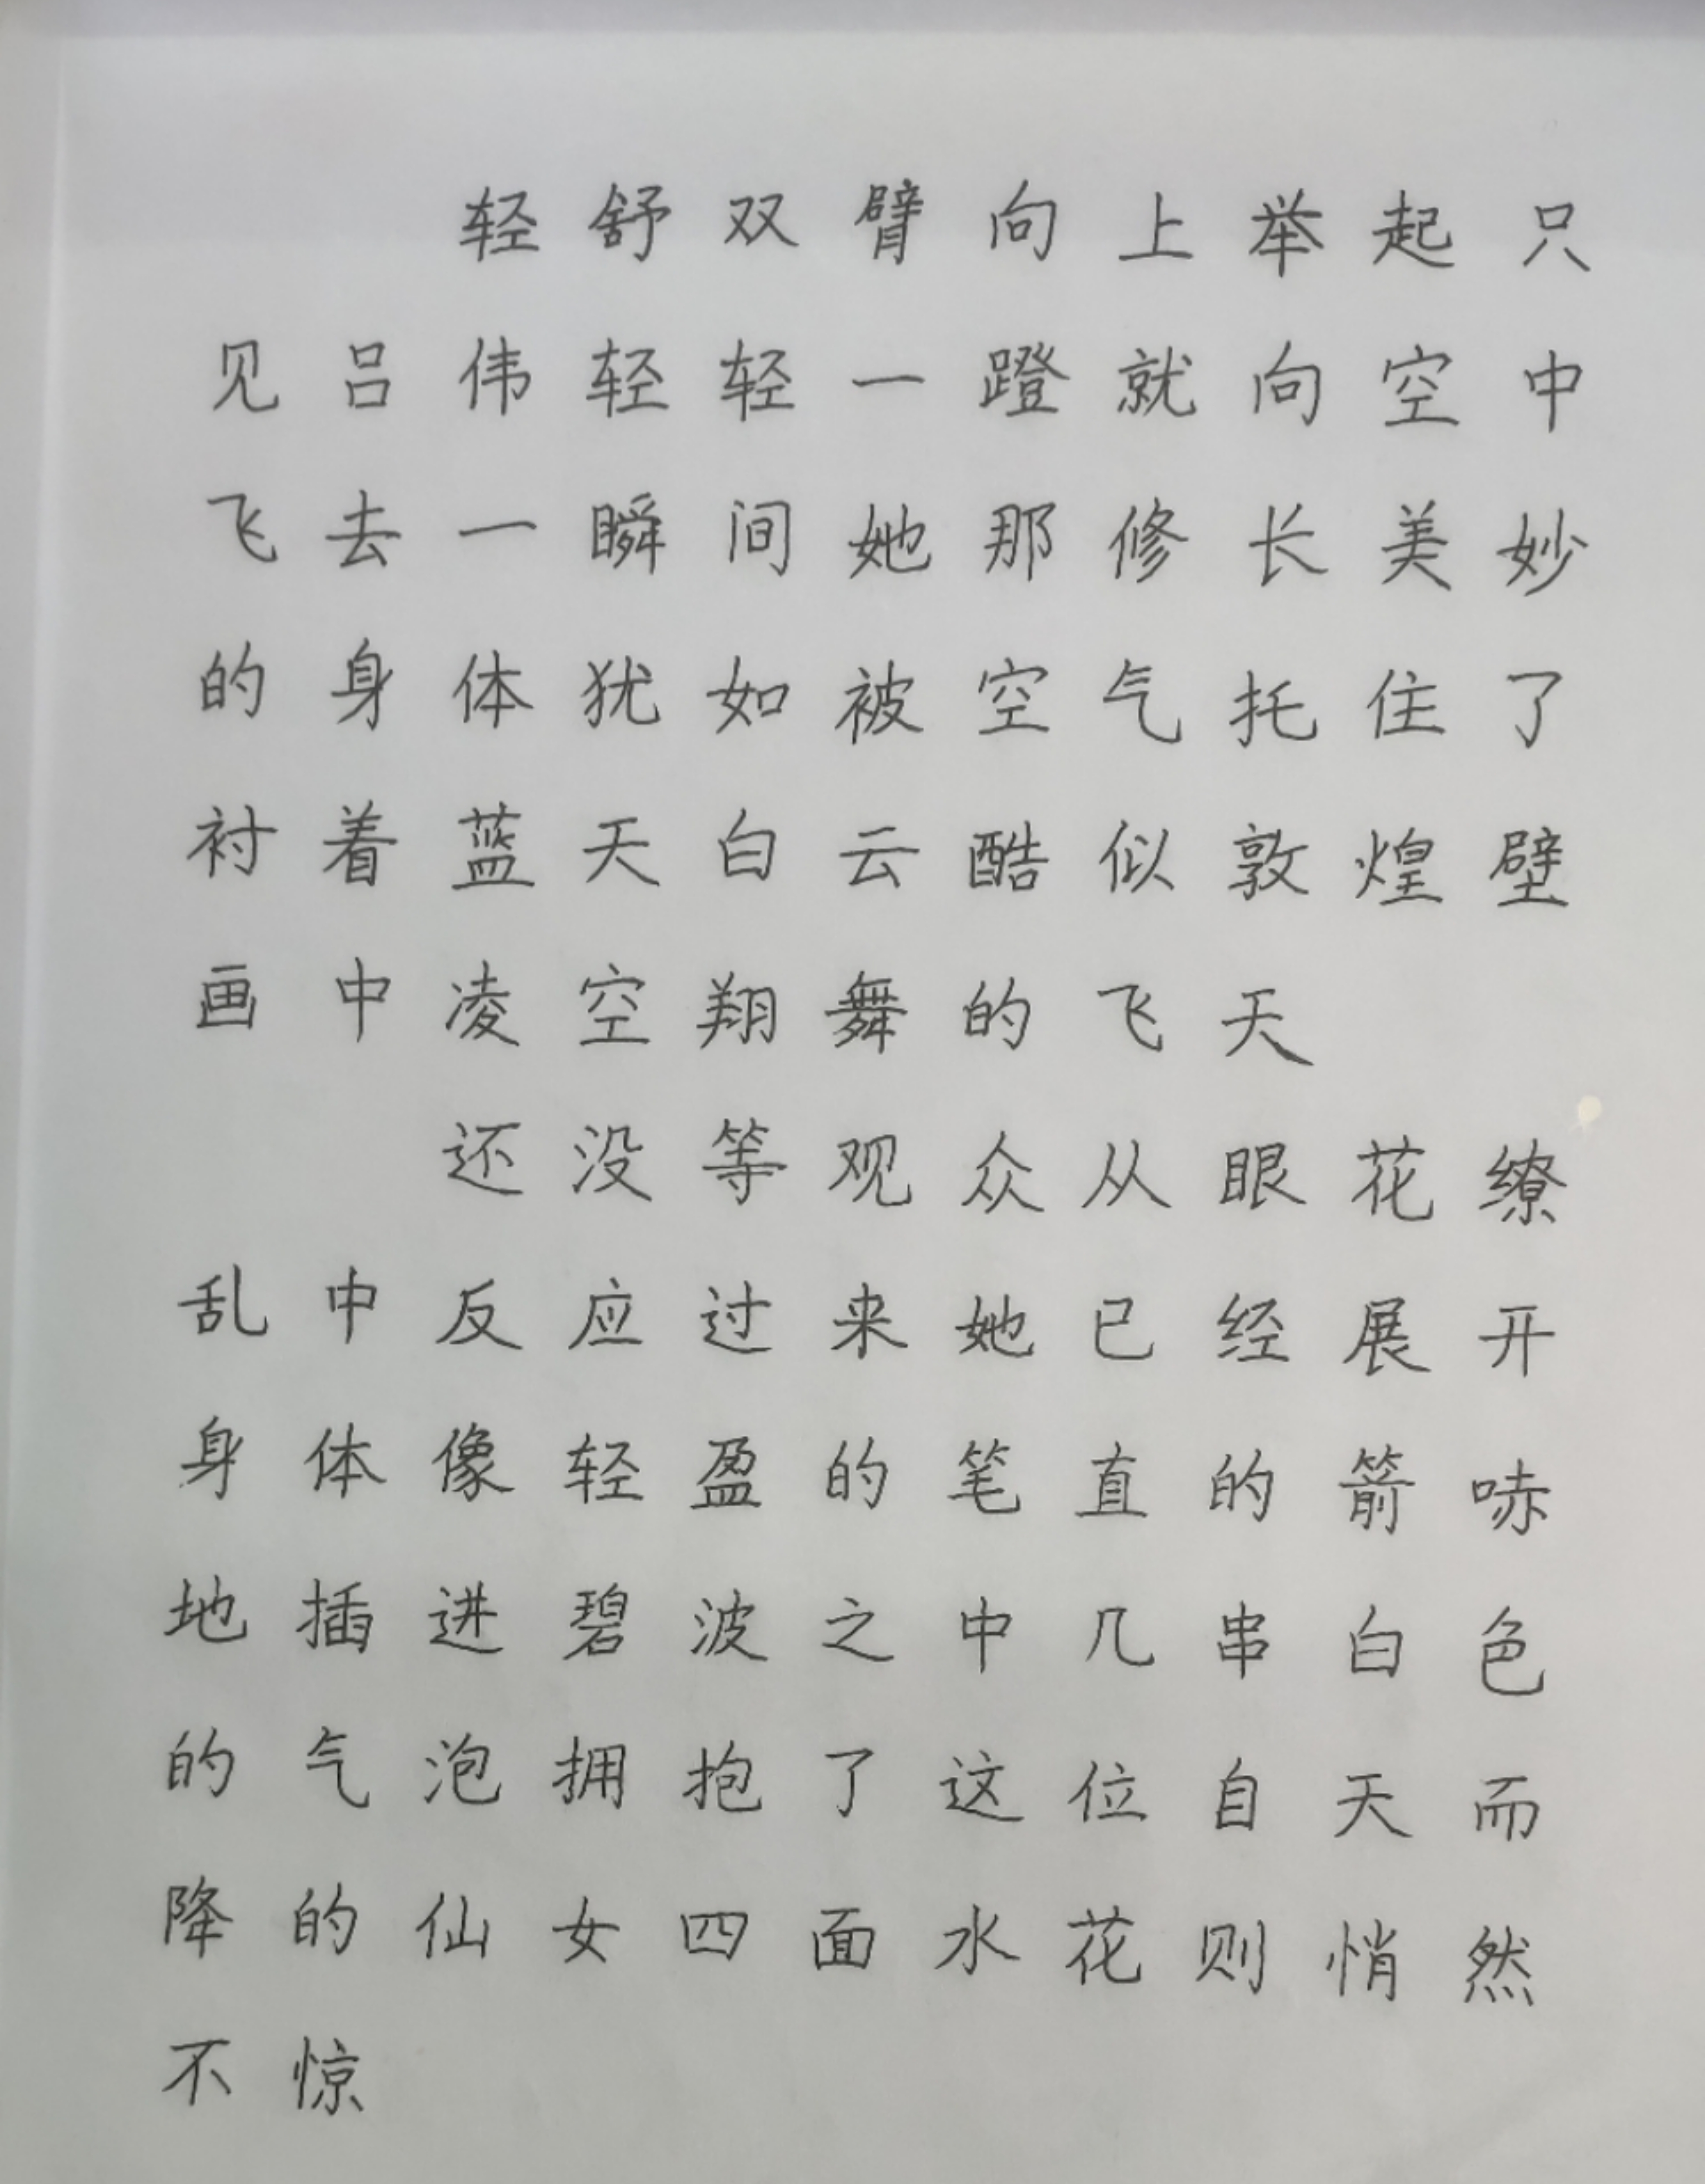 轻舒双臂向上举起只
见吕伟轻轻一蹬就向空中
飞去一瞬间她那修长美妙
的身体犹如被空气托住了
衬着蓝天白云酷似敦煌壁
画中凌空翔舞的飞天
还没等观众从眼花缭
乱中反应过来她已经展开
身体像轻盈的笔直的箭哧
地插进碧波之中几串白色
的气泡拥抱了这位自天而
降的仙女四面水花则悄然
不惊